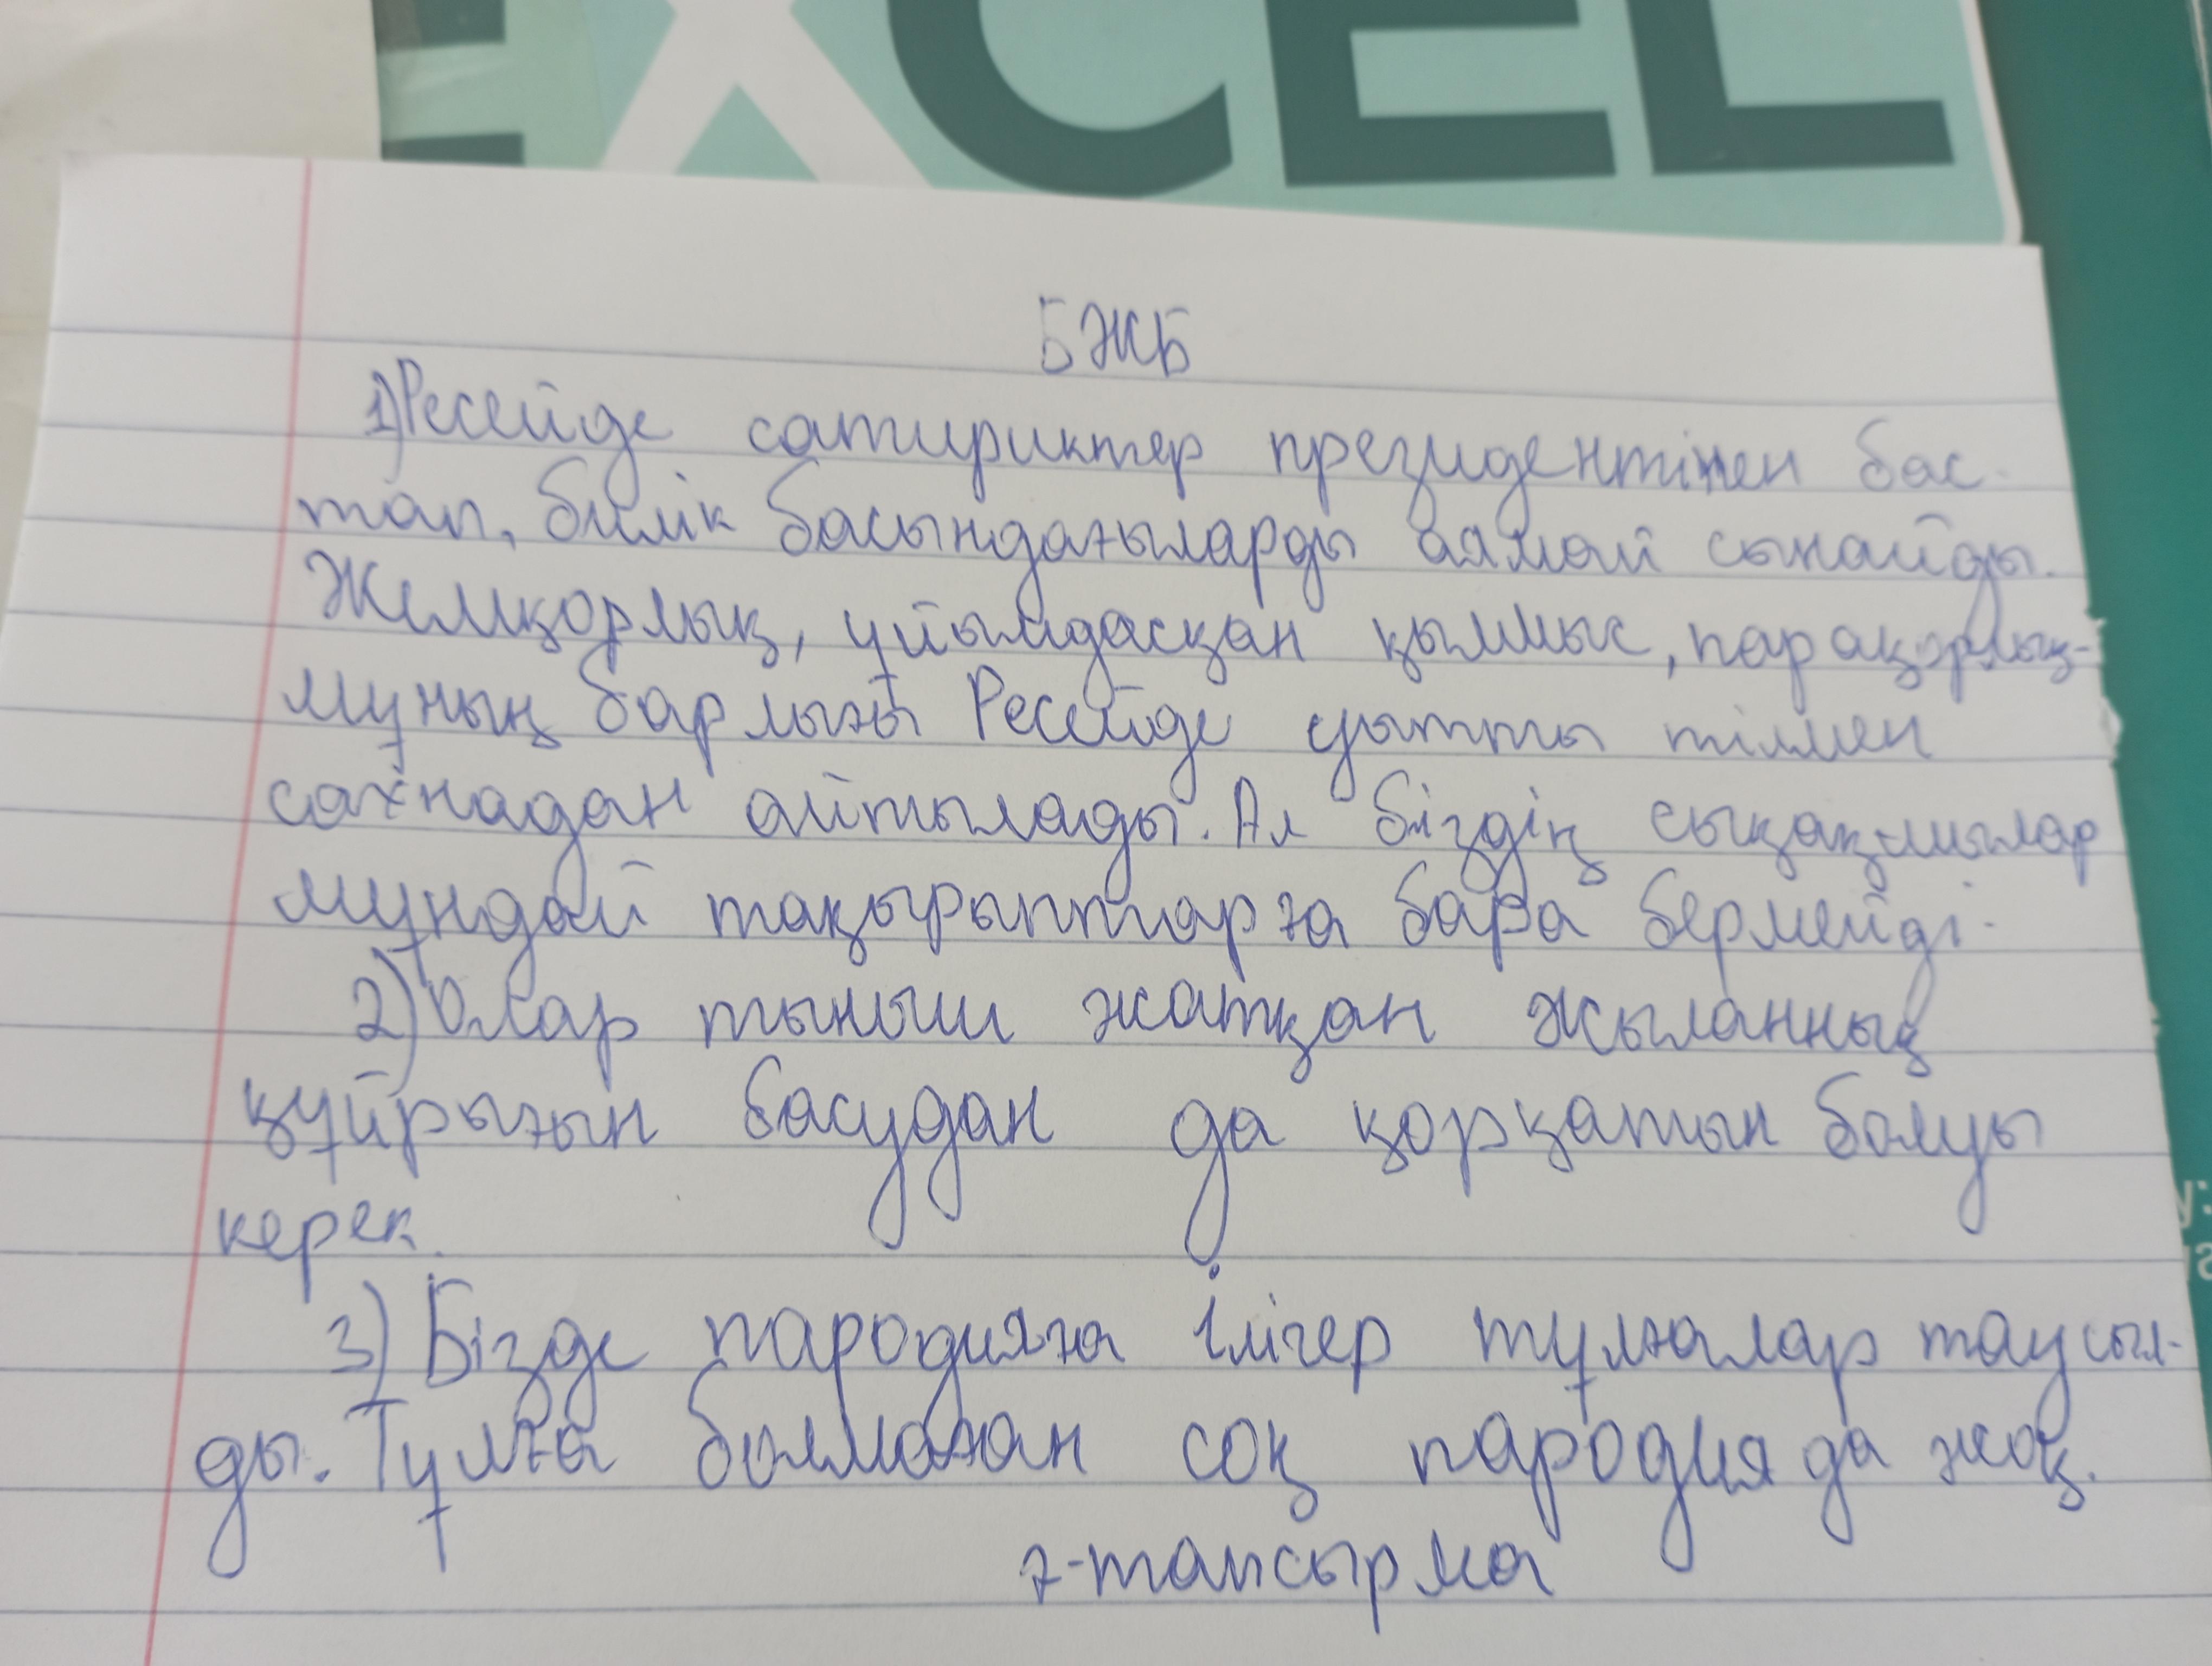 EXCEL
БЖБ
1) Ресейде сатириктер президентінен бас-
тап, билік басындағыларды аямай сынайды.
Жемқорлық, ұйымдасқан қылмыс, парақорлық-
мұның барлығы Ресейде уытты тілмен
сахнадан айтылады. Ал біздің сықақшылар
мұндай тақырыптарға бара бермейді.
2) Олар тыныш жатқан жыланның
құйрығын басудан да қорқатын болуы
керек.
3) Бізде пародияға ілігер тұлғалар таусыл-
ды. Тұлға болмаған соң пародия да жоқ.
7-тапсырма